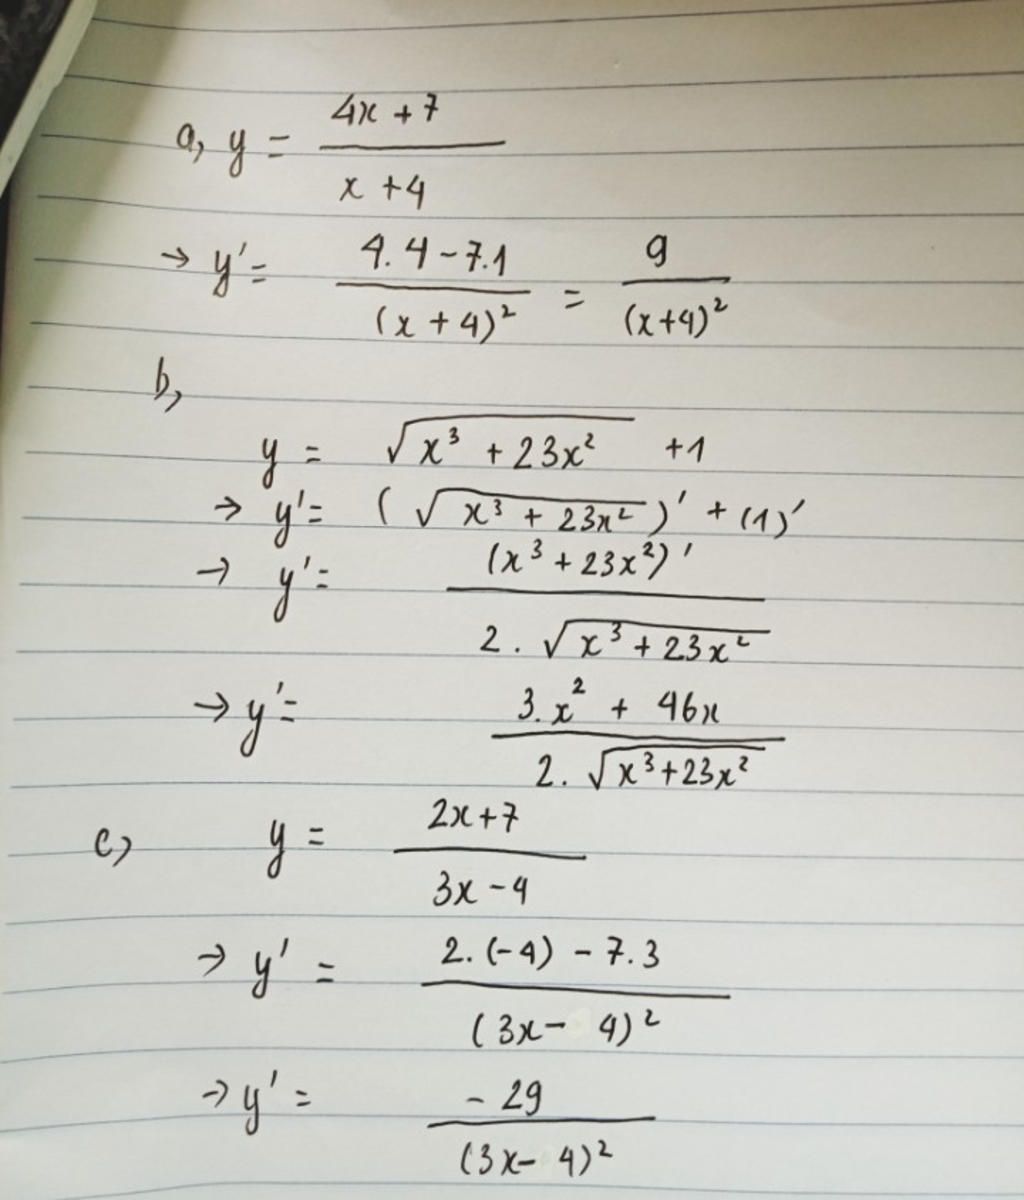 a, y = (4x + 7)/(x + 4)
→ y' = (4.4 - 7.1)/(x + 4)² = 9/(x+4)²
b,
y = √(x³ + 23x²) + 1
→ y' = (√(x³ + 23x²))' + (1)'
→ y' = (x³ + 23x²)'/(2.√(x³ + 23x²))
→ y' = (3.x² + 46x)/(2.√(x³+23x²))
c, y = (2x+7)/(3x - 4)
→ y' = (2.(-4) - 7.3)/(3x - 4)²
→ y' = -29/(3x - 4)²